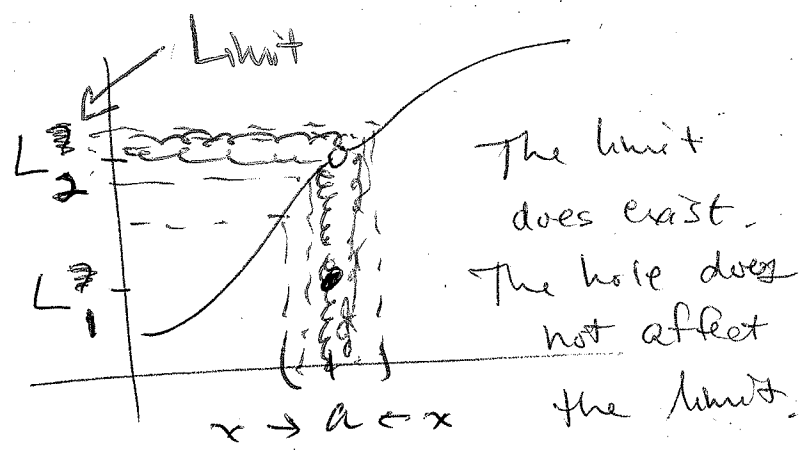 Limit
L2
L1
x → a ← x
The limit
does exist.
The hole does
not affect
the limit.